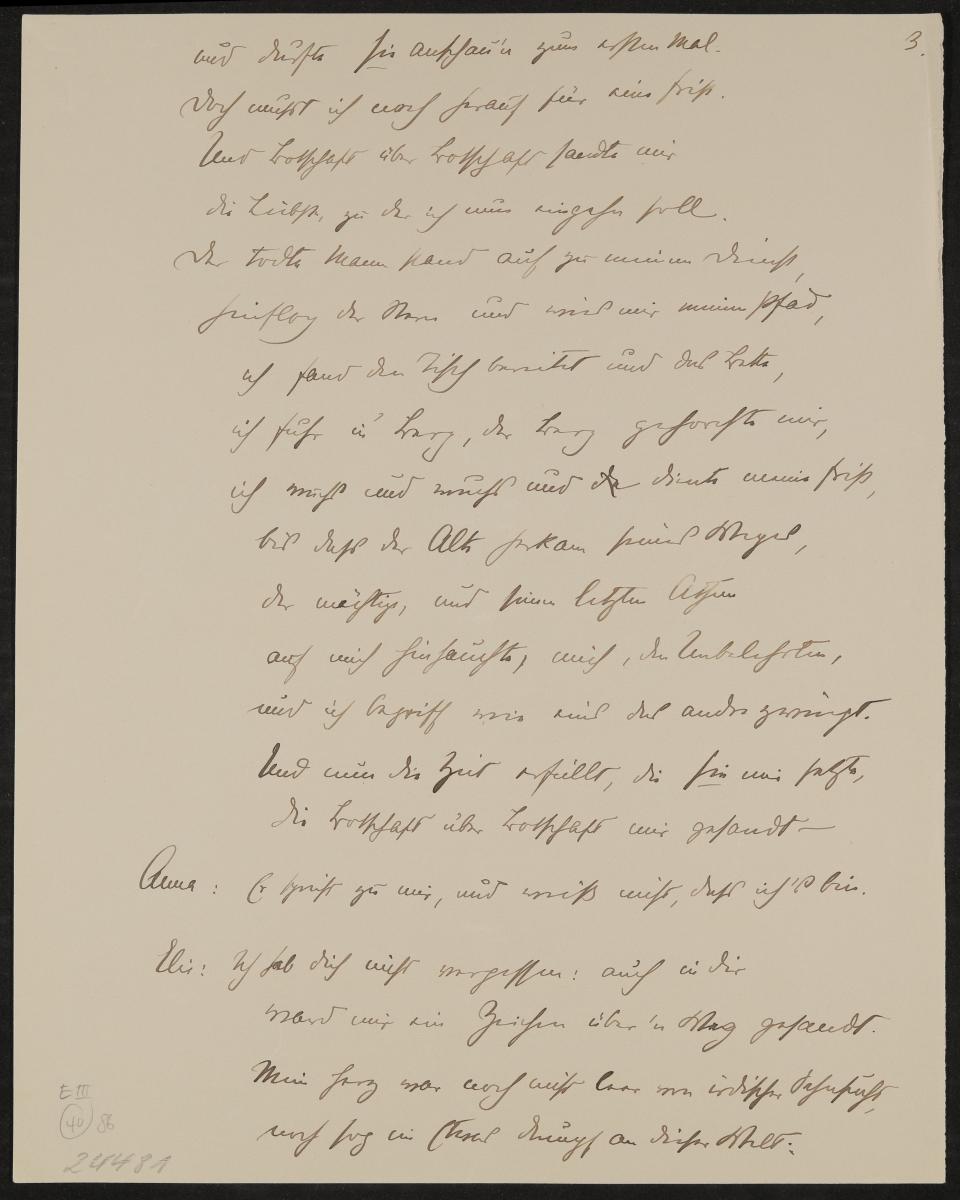 3.
und durfte sie anschau'n zum ersten Mal.
Doch musst ich noch herauf für eine Frist.
Und Botschaft über Botschaft sandte mir
die Liebste, zu der ich nun eingehn soll.
Der todte Mann stand auf zu meinem Dienst,
hinflog der Stern und wies mir meinen Pfad,
ich fand den Tisch bereitet und das Bette,
ich fuhr in' Berg, der Berg gehorchte mir,
ich wuchs und wuchs und diente meine Frist,
bis dass der Alte herkam seines Weges,
der mächtige, und seinen letzten Athem
auf mich hinhauchte, mich, den Unbelehrten,
und ich begriff wie eins das andre zwingt.
Und nun die Zeit erfüllt, die sie mir setzte,
die Botschaft über Botschaft mir gesandt –
Anna: Er spricht zu mir, und weiß nicht, dass ich's bin.
Elis: Ich hab dich nicht vergessen: auch in dir
ward mir ein Zeichen über'n Weg gesandt.
Mein Herz war noch nicht leer von irdischer Sehnsucht,
noch sog ein etwas dumpf an dieser Welt:
E III
40 86
24481